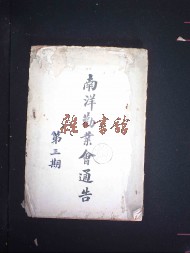 南洋勸業會通告
第三期